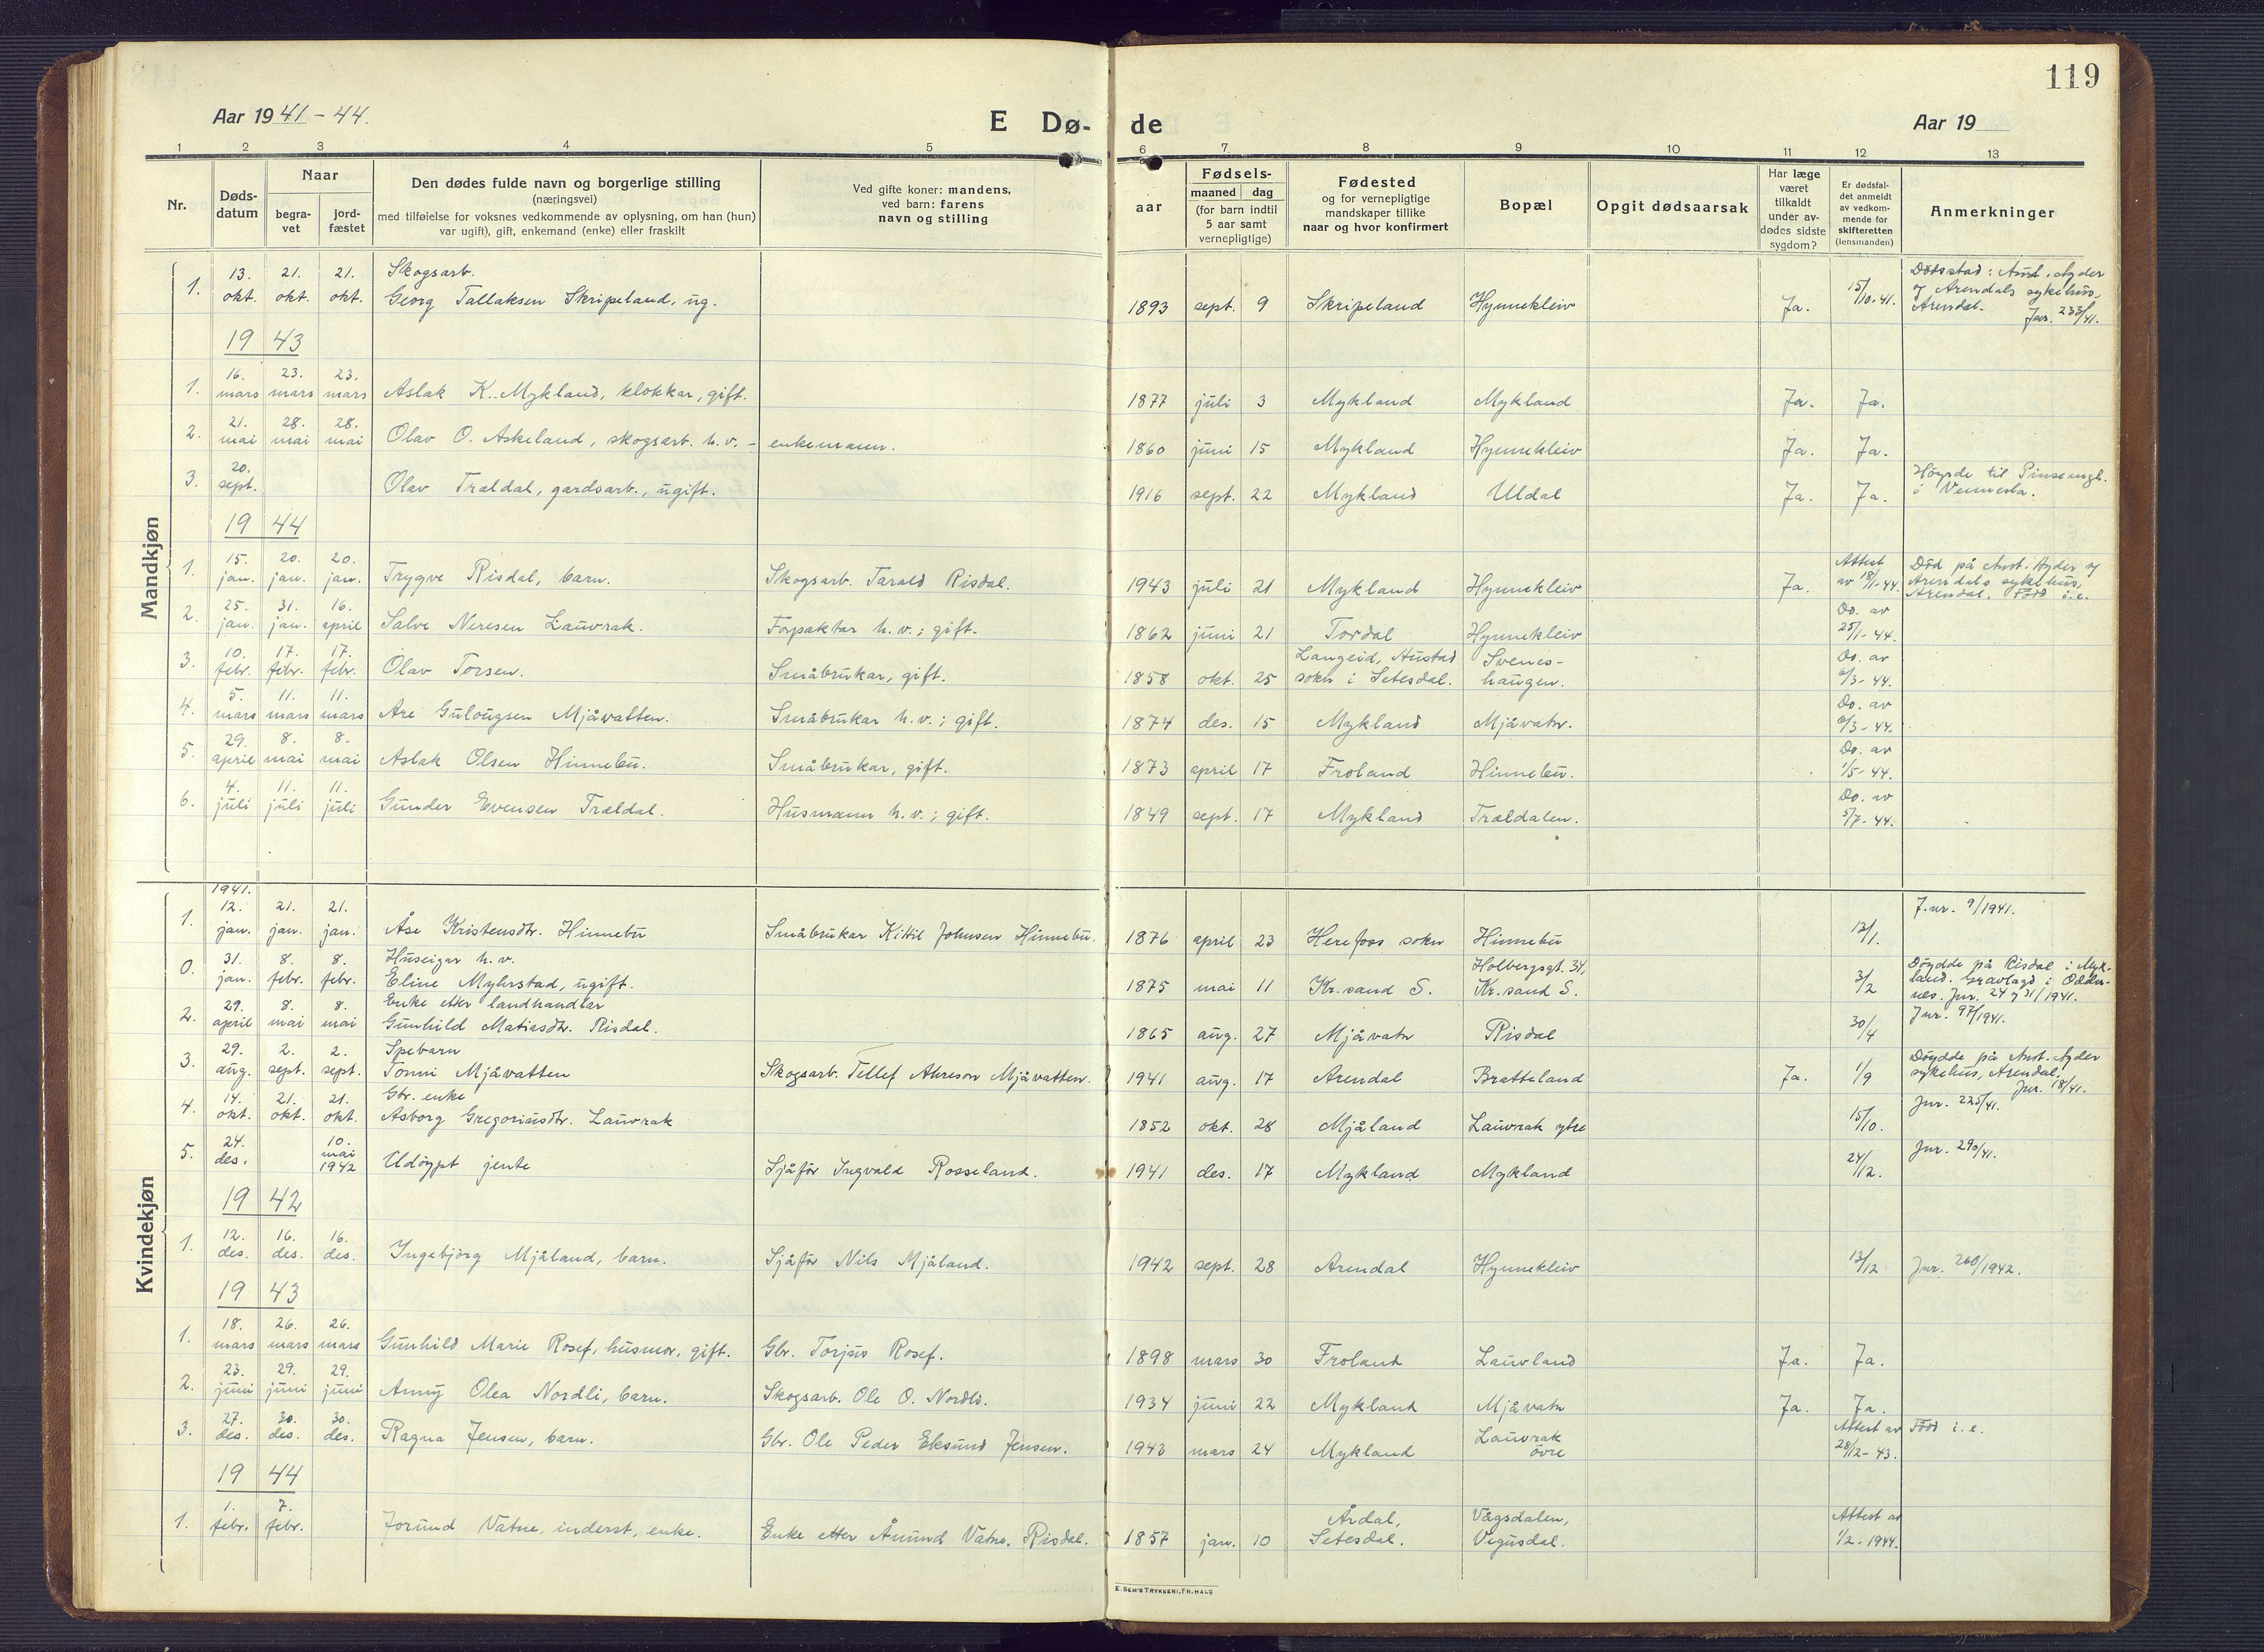 119
Aar 1941-44.
E Dø-
de
Aar 19
1 2 3 4 5 6 7 8 9 10 11 12 13
Nr.
Døds-
datum
Naar
begra-
vet
jord-
fæstet
Den dødes fulde navn og borgerlige stilling
(næringsvei)
med tilføielse for voksnes vedkommende av oplysning, om han (hun)
var ugift), gift, enkemand (enke) eller fraskilt
Ved gifte koner: mandens,
ved barn: farens
navn og stilling
aar
Fødsels-
maaned dag
(for barn indtil
5 aar samt
vernepligtige)
Fødested
og for vernepligtige
mandskaper tillike
naar og hvor konfirmert
Bopæl
Opgit dødsaarsak
Har læge
været
tilkaldt
under av-
dødes sidste
sygdom?
Er dødsfal-
det anmeldt
av vedkom-
mende for
skifteretten
(lensmanden)
Anmerkninger
Mandkjøn
1. 13. okt. 21. okt. 21. okt. Skogsarb.
Georg Tallaksen Skripeland, ug. 1893 sept. 9 Skripeland Hynnekleiv Ja. 15/10.41. Dødsstad: Aust-Agder
og Arendals sykehus,
Arendal. Jnr. 233/41.
19 43
1. 16. mars 23. mars 23. mars Aslak K. Mykland, klokkar, gift. 1877 juli 3 Mykland Mykland Ja. Ja.
2. 21. mai 28. mai 28. mai Olav O. Askeland, skogsarb. h.v. - enkemann. 1860 juni 15 Mykland Hynnekleiv Ja. Ja.
3. 20. sept. Olav Trældal, gardsarb., ugift. 1916 sept. 22 Mykland Uldal Ja. Ja. Høyrde til Pinsemgh.
i Vennesla.
19 44
1. 15. jan. 20. jan. 20. jan. Trygve Risdal, barn. Skogsarb. Tarald Risdal. 1943 juli 21 Mykland Hynnekleiv Ja. Attest
av 18/1-44. Død på Aust-Agder og
Arendals sykehus,
Arendal. Fødd i.e.
2. 25. jan. 31. jan. 16. april Salve Neresen Lauvrak. Forpaktar h.v.; gift. 1862 juni 21 Tordal Hynnekleiv Do. av
25/1-44.
3. 10. febr. 17. febr. 17. febr. Olav Torsen. Småbrukar, gift. 1858 okt. 25 Langeid, Austad
sokn i Setesdal. Svenes-
haugen. Do. av
6/3-44.
4. 5. mars 11. mars 11. mars Are Gulougsen Mjåvatten. Småbrukar h.v.; gift. 1874 des. 15 Mykland Mjåvatn. Do. av
6/3-44.
5. 29. april 8. mai 8. mai Aslak Olsen Hinnebu. Småbrukar, gift. 1873 april 17 Froland Hinnebu. Do. av
1/5-44.
6. 4. juli 11. juli 11. juli Gunder Evensen Trældal. Husmann h.v.; gift. 1849 sept. 17 Mykland Trældalen. Do. av
5/7-44.
Kvindekjøn
1941.
1. 12. jan. 21. jan. 21. jan. Åse Kristensdtr. Hinnebu Småbrukar Kittil Johnsen Hinnebu. 1876 april 23 Herefoss sokn Hinnebu 13/1. J.nr. 9/1941.
0. 31. jan. 8. febr. 8. febr. Huseigar h.v.
Eline Myhrstad, ugift. 1875 mai 11 Kr.sand S. Holbergsgt. 34,
Kr.sand S. 3/2 Døydde på Risdal i Myk-
land. Gravlagd i Odder-
nes. Jnr. 24 og 31/1941.
2. 29. april 8. mai 8. mai Enke etter landhandlar
Gunhild Matiasdtr. Risdal. 1865 aug. 27 Mjåvatn Risdal 30/4 Jnr. 97/1941.
3. 29. aug. 2. sept. 2. sept. Spebarn
Tonni Mjåvatten Skogsarb. Tellef Akreson Mjåvatten. 1941 aug. 17 Arendal Bratteland Ja. 1/9 Døydde på Aust-Agder
sykehus, Arendal.
Jnr. 18/41.
4. 14. okt. 21. okt. 21. okt. Gbr. enke
Asborg Gregoriusdtr. Lauvrak 1852 okt. 28 Mjåland Lauvrak ytre 15/10. Jnr. 225/41.
5. 24. des. 10. mai 1942 Udøypt jente Sjåfør Ingvald Rosseland. 1941 des. 17 Mykland Mykland 24/12. Jnr. 290/41.
19 42
1. 12. des. 16. des. 16. des. Ingebjørg Mjåland, barn. Sjåfør Nils Mjåland. 1942 sept. 28 Arendal Hynnekleiv 13/12 Jnr. 260/1942.
19 43
1. 18. mars 26. mars 26. mars Gunhild Marie Rosef, husmor, gift. Gbr. Torjus Rosef. 1898 mars 30 Froland Lauvland Ja. Ja.
2. 23. juni 29. juni 29. juni Anny Olea Nordli, barn. Skogsarb. Ole O. Nordli. 1934 juni 22 Mykland Mjåvatn Ja. Ja.
3. 27. des. 30. des. 30. des. Ragna Jensen, barn. Gbr. Ole Peder Eksund Jensen. 1943 mars 24 Mykland Lauvrak
øvre Attest av
28/12-43. Fødd i.e.
19 44
1. 1. febr. 7. febr. Jorund Vatne, inderst, enke. Enke etter Åmund Vatne, Risdal. 1857 jan. 10 Årdal,
Setesdal. Vågsdalen,
Vegusdal. Attest av
1/2-1944.
E. SEM'S TRYKKERI, FR.HALD